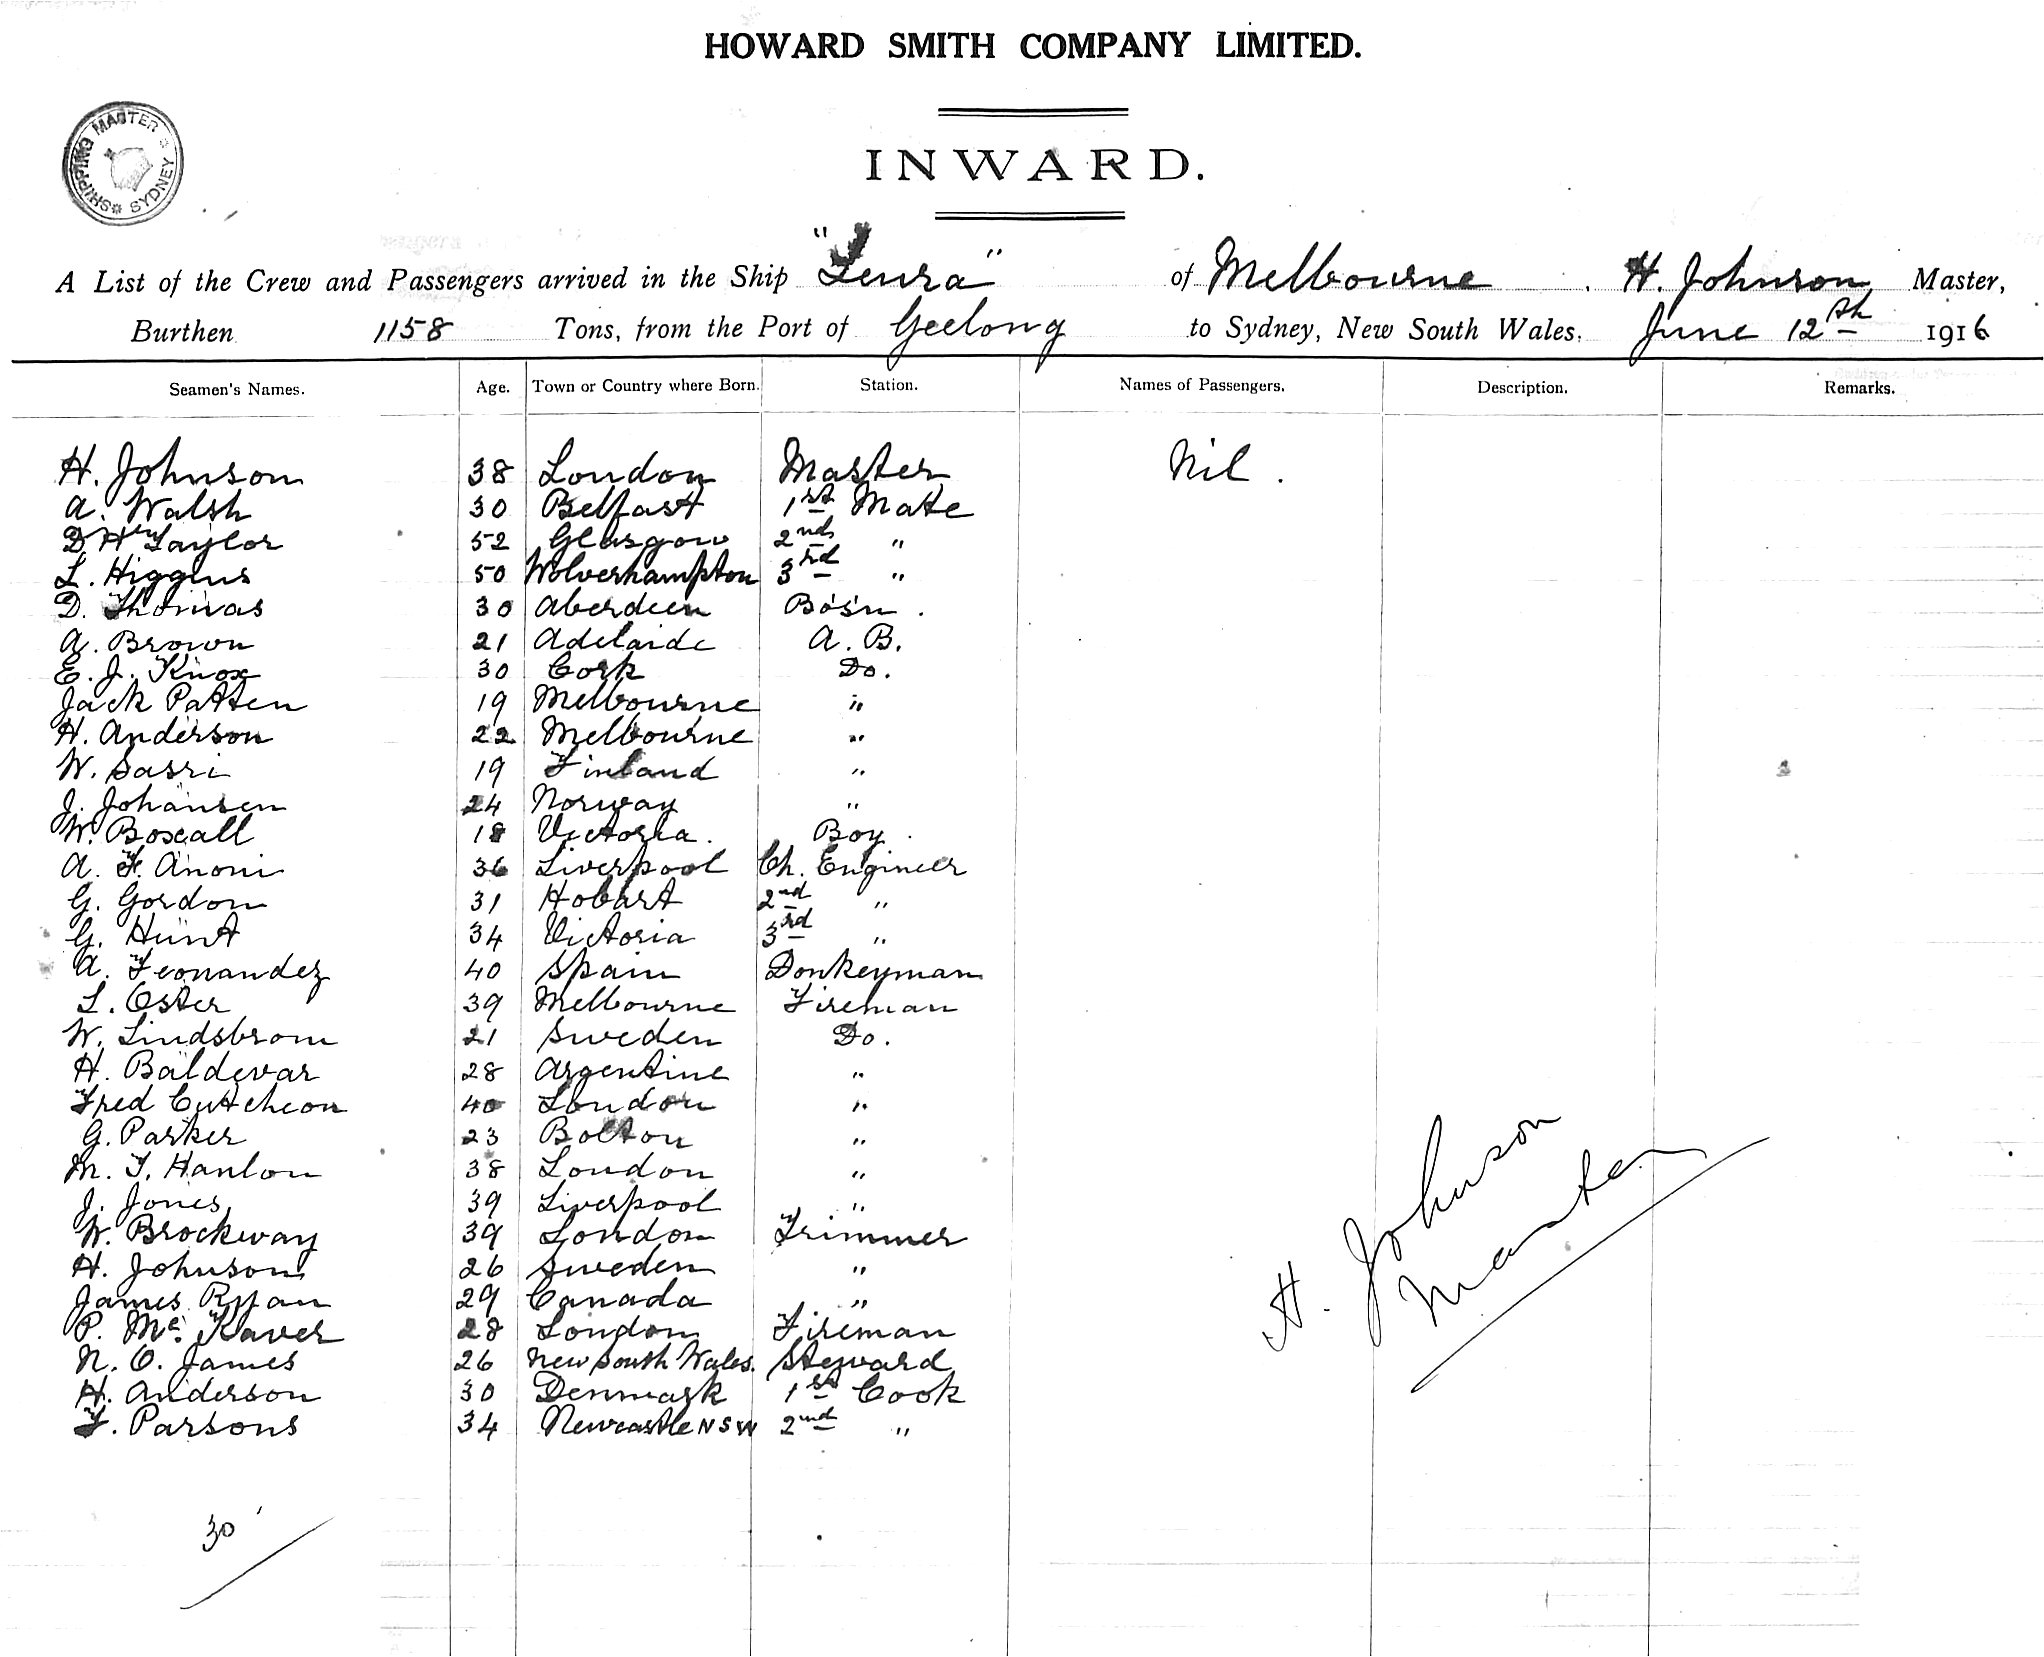 HOWARD SMITH COMPANY LIMITED.
SHIPPING MASTER * SYDNEY *
INWARD.
A List of the Crew and Passengers arrived in the Ship "Leura" of Melbourne. H. Johnson Master,
Burthen 1158 Tons, from the Port of Geelong to Sydney, New South Wales. June 12th 1916
Seamen's Names. Age. Town or Country where Born. Station. Names of Passengers. Description. Remarks.
H. Johnson 38 London Master Nil.
A. Walsh 30 Belfast 1st Mate
D Hy Taylor 52 Glasgow 2nd "
L. Higgins 50 Wolverhampton 3rd "
D. Thomas 30 Aberdeen Bo's'n.
A. Brown 21 Adelaide A. B.
E. J. Knox 30 Cork Do.
Jack Patten 19 Melbourne "
H. Anderson 22 Melbourne "
W. Sasri 19 Finland "
J. Johansen 24 Norway "
W. Boxall 18 Victoria. Boy.
A. F. Anoni 36 Liverpool Ch. Engineer
G. Gordon 31 Hobart 2nd "
G. Hunt 34 Victoria 3rd "
A. Feonandez 40 Spain Donkeyman
L. Oster 39 Melbourne Fireman
W. Lindsbrom 21 Sweden Do.
H. Baldevar 28 Argentine "
Fred Cutcheon 40 London "
G. Parker 23 Bolton "
M. T. Hanlon 38 London "
J. Jones 39 Liverpool "
W. Brockway 39 London Trimmer
H. Johnson 26 Sweden "
James Ryan 29 Canada "
P. Mc. Kaver 28 London Fireman
N. O. James 26 New South Wales. Steward
H. Anderson 30 Denmark 1st Cook
F. Parsons 34 Newcastle NSW 2nd "
H. Johnson
Master
30